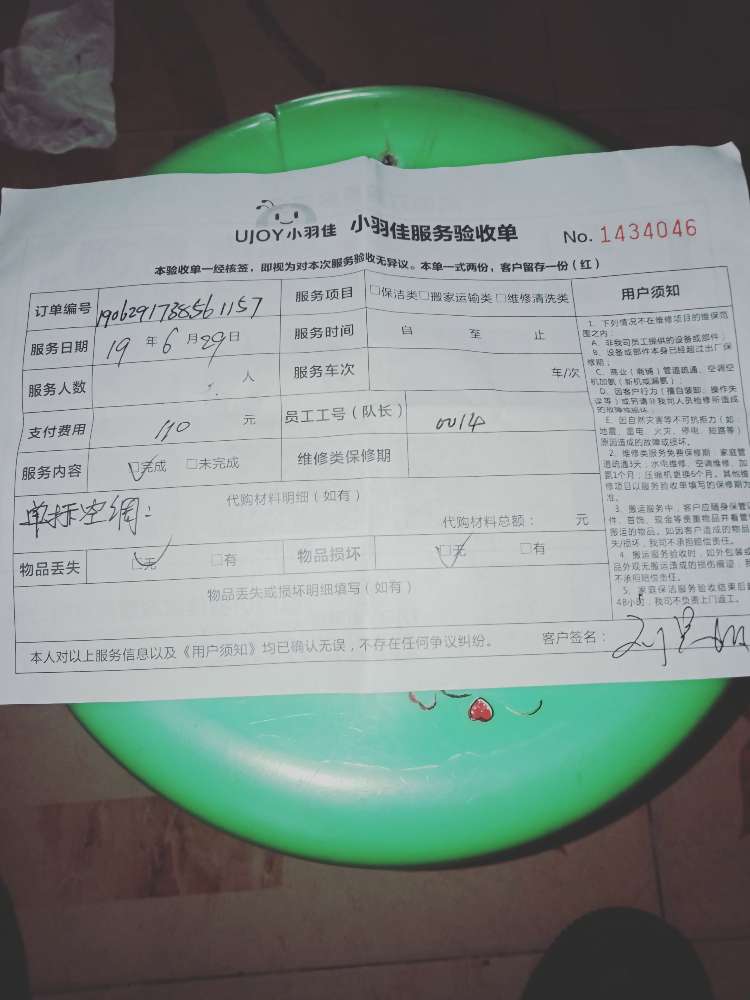 UJOY小羽佳 小羽佳服务验收单 No. 1434046
本验收单一经核签，即视为对本次服务验收无异议。本单一式两份，客户留存一份（红）
订单编号 1906291738561157 服务项目 □保洁类□搬家运输类□维修清洗类
服务日期 19 年 6 月 29 日 服务时间 自 至 止
服务人数 人 服务车次 车/次
支付费用 110 元 员工工号（队长） 0014
服务内容 ☑完成 □未完成 维修类保修期
代购材料明细（如有）
代购材料总额： 元
物品丢失 ☑无 □有 物品损坏 ☑无 □有
物品丢失或损坏明细填写（如有）
本人对以上服务信息以及《用户须知》均已确认无误，不存在任何争议纠纷。 客户签名：
用户须知
1、下列情况不在维修项目的维保范
围之内：
A、非我司员工提供的设备或部件；
B、设备或部件本身已经超过出厂保
修期；
C、商业（商铺）管道疏通、空调空
机加氨（新机或漏氨）；
D、因客户行为（擅自装卸、操作失
误等）或另请非我司人员检修所造成
的故障性损坏；
E、因自然灾害等不可抗拒力（如：
地震、雷电、火灾、停电、短路等）
原因造成的故障或损坏。
2、维修类服务免费保修期：家庭管
道疏通3天；水电维修、空调维修、加
氨1个月；压缩机更换6个月。其他维
修项目以服务验收单填写的保修期为
准。
3、搬运服务中，客户应随身保管证
件、首饰、现金等贵重物品并看管
搬运的物品。如因客户造成的物品
失/损坏，我司不承担赔偿责任。
4、搬运服务验收时，如外包装或
品外观无搬运造成的损伤痕迹，我
不承担赔偿责任。
5、家庭保洁服务验收结束后超
48小时，我司不负责上门返工。